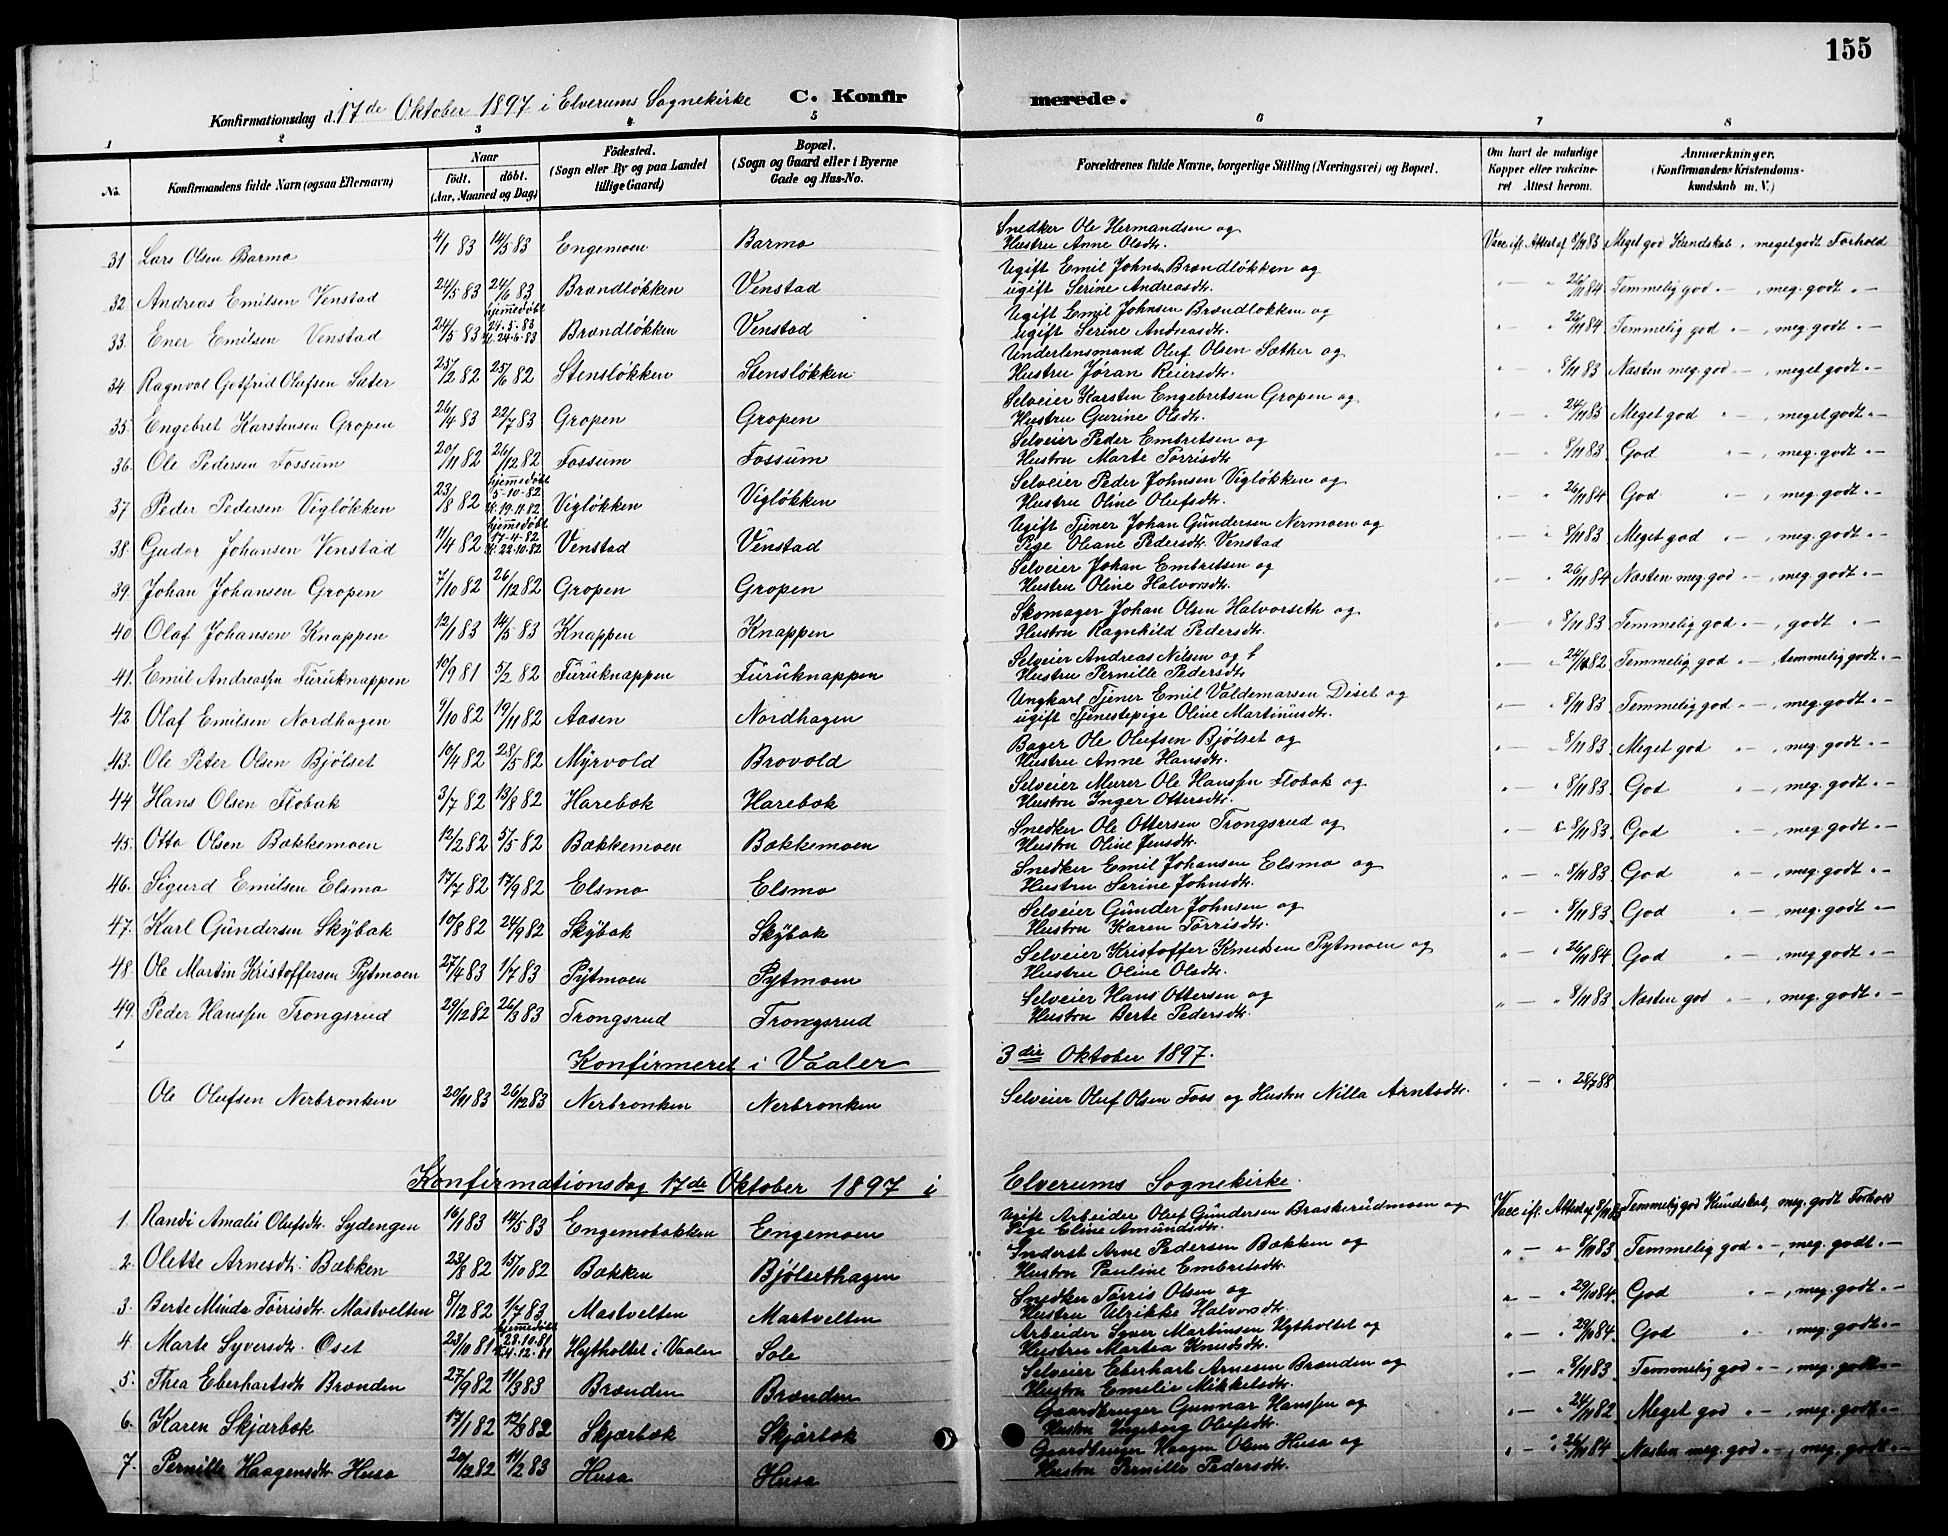 155
Konfirmationsdag d. 17de Oktober 1897 i Elverums Sognekirke C. Konfirmerede.
1 2 3 4 5 6 7 8
No. Konfirmandens fulde Navn (ogsaa Efternavn) Naar födt. döbt. (Aar, Maaned og Dag) Födested. (Sogn eller By og paa Landet tillige Gaard) Bopæl. (Sogn og Gaard eller i Byerne Gade og Hus-No. Forældrenes fulde Navne, borgerlige Stilling (Næringsvei) og Bopæl. Om havt de naturlige Kopper eller vakcineret. Attest herom. Anmærkninger. (Konfirmandens Kristendomskundskab m. V.)
31 Lars Olsen Barmo 4/1 83 14/5 83 Engemoen Barmo Snedker Ole Hermandsen og Hustru Anne Olsdtr. Vacc. ifl. Attest af 8/11 83 Meget god Kundskab, meget godt Forhold
32 Andreas Emilsen Venstad 24/5 83 24/6 83 Brændløkken Venstad Ugift Emil Johnsen Brændløkken og ugift Serine Andreasdtr. " — " 26/11 84 Temmelig god " —, meg. godt " —
33. Ener Emilsen Venstad 24/5 83 hjemmedøbt 24-5-83 24-6-83 Brændløkken Venstad Ugift Emil Johnsen Brændløkken og ugift Serine Andreasdtr. " — " 26/11 84 Temmelig god " —, meg. godt " —
34. Ragnvol Gotfrid Olafsen Sæter 23/2 82 25/6 82 Stensløkken Stensløkken Underlensmand Oluf Olsen Sæther og Hustru Jøran Reiersdtr. " — " 8/11 83 Næsten meg. god " —, meget godt " —
35. Engebret Karstensen Gropen 26/4 83 22/7 83 Gropen Gropen Selveier Karsten Engebretsen Gropen og Hustru Gurine Olsdtr. " — " 24/11 83 Meget god " —, meget godt " —
36. Ole Pedersen Fossum 20/11 82 26/12 82 Fossum Fossum Selveier Peder Embretsen og Hustru Marte Tørrisdtr. " — " 8/11 83 God " —, meg. godt " —
37 Peder Pedersen Vigløkken 23/8 82 hjemmedøbt 5-10-82 19.11.82 Vigløkken Vigløkken Selveier Peder Johnsen Vigløkken og Hustru Oline Olufsdtr. " — " 26/11 84 God " —, meg. godt " —
38. Gudor Johansen Venstad 11/4 82 hjemmedøbt 17-4-82 22-10-82 Venstad Venstad Ugift Tjener Johan Gundersen Nermoen og Pige Oleane Pedersdtr. Venstad " — " 8/11 83 Meget god " —, meg. godt " —
39. Johan Johansen Gropen 7/10 82 26/12 82 Gropen Gropen Selveier Johan Embretsen og Hustru Oline Halvorsdtr. " — " 26/11 84 Næsten meg. god " —, meg. godt " —
40 Olaf Johansen Knappen 12/1 83 14/5 83 Knappen Knappen Skomager Johan Olsen Halvorseth og Hustru Ragnhild Pedersdtr. " — " 8/11 83 Temmelig god " —, godt " —
41. Emil Andreassen Furuknappen 10/9 81 5/2 82 Furuknappen Furuknappen Selveier Andreas Nilsen og Hustru Pernille Pedersdtr. " — " 24/11 82 Temmelig god " —, temmelig godt " —
42 Olaf Emilsen Nordhagen 9/10 82 19/11 82 Aasen Nordhagen Ungkarl Tjener Emil Valdemarsen Diset og ugift Tjenestepige Oline Martinusdtr. " — " 8/11 83 Temmelig god " —, meg. godt " —
43. Ole Peter Olsen Bjølset 10/4 82 28/5 82 Myrvold Brovold Bager Ole Olufsen Bjølset og Hustru Anne Hansdtr. " — " 8/11 83 Meget god " —, meg. godt " —
44 Hans Olsen Flobak 3/7 82 13/8 82 Harebæk Harebæk Selveier Murer Ole Hanssen Flobak og Hustru Inger Ottersdtr. " — " 8/11 83 God " —, meg. godt " —
45. Otto Olsen Bækkemoen 12/2 82 5/5 82 Bækkemoen Bækkemoen Snedker Ole Ottersen Trongsrud og Hustru Oline Jensdtr. " — " 8/11 83 God " —, meg. godt " —
46. Sigurd Emilsen Elsmo 17/7 82 17/9 82 Elsmo Elsmo Snedker Emil Johansen Elsmo og Hustru Serine Johnsdtr. " — " 8/11 83 God " —, meg. godt " —
47. Karl Gundersen Skybæk 10/8 82 24/9 82 Skybæk Skybæk Selveier Gunder Johnsen og Hustru Karen Tørrisdtr. " — " 8/11 83 God " —, meg. godt " —
48. Ole Martin Kristoffersen Pytmoen 27/4 83 1/7 83 Pytmoen Pytmoen Selveier Kristoffer Knudsen Pytmoen og Hustru Oline Olsdtr. " — " 26/11 84 God " —, meg. godt " —
49. Peder Hanssen Trongsrud 29/12 82 26/3 83 Trongsrud Trongsrud Selveier Hans Ottersen og Hustru Berte Pedersdtr. " — " 8/11 83 Næsten god " —, meg. godt " —
Konfirmeret i Vaaler 3die Oktober 1897.
Ole Olufsen Nerbronken 20/11 83 26/12 83 Nerbronken Nerbronken Selveier Oluf Olsen Foss og Hustru Nilla Arntsdtr. " — "
Konfirmationsdag 17de Oktober 1897 i Elverums Sognekirke.
1. Randi Amalie Olufsdtr. Lydengen 16/1 83 14/5 83 Engemobakken Engemoen Ugift Arbeider Oluf Gundersen Braskerudmoen og Pige Eline Amundsdtr. Vacc. ifl. Attest af 8/11 83 Temmelig god Kundskab, meg. godt Forhold
2. Olette Arnesdtr. Bækken 23/8 82 15/10 82 Bækken Bjølsethagen Inderst Arne Pedersen Bækken og Hustru Pauline Embretsdtr. " — " 8/11 83 Temmelig god " —, meg. godt " —
3. Berte Minda Tørrisdtr. Mastvelten 8/12 82 1/7 83 Mastvelten Mastvelten Snedker Tørris Olsen og Hustru Ulrikke Halvorsdtr. " — " 29/10 84 God " —, meg. godt " —
4. Marte Syversdtr. Oset 23/10 81 hjemmedøbt 28.10.81 4.12.81 Hytholtet i Vaaler Sole Arbeider Syver Martinsen Hytholtet og Hustru Martea Knudsdtr. " — " 29/10 84 God " —, meg. godt " —
5. Thea Eberhartsdtr Brænden 27/9 82 11/3 83 Brænden Brænden Selveier Eberhart Arnesen Brænden og Hustru Emelie Mikkelsdtr. " — " 8/11 83 Temmelig god " —, meg. godt " —
6. Karen Skjærbæk 17/1 82 12/3 82 Skjærbæk Skjærbæk Gaardbruger Gunnar Hanssen og Hustru Ingeborg Olufsdtr. " — " 24/11 82 Meget god " —, meg. godt " —
7. Pernille Haagensdtr. Husa 20/12 82 11/2 83 Husa Husa Gaardbruger Haagen Olsen Husa og Hustru Pernille Pedersdtr. " — " 26/11 84 Næsten meg. god " —, meg. godt " —